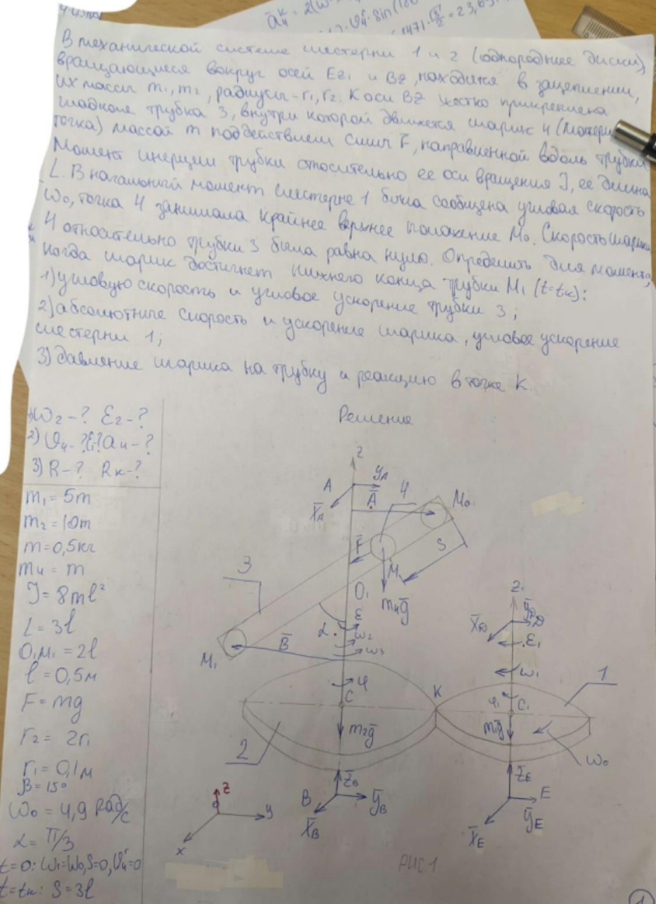 В механической системе шестерни 1 и 2 (однородные диски),
вращающиеся вокруг осей Ez₁ и Bz, находятся в зацеплении,
их массы m₁, m₂, радиусы - r₁, r₂. К оси Bz жестко прикреплена
гладкая трубка 3, внутри которой движется шарик 4
точка) массой m под действием силы F, направленной вдоль трубки
Момент инерции трубки относительно ее оси вращения J, ее длина
L. В начальный момент шестерне 1 была сообщена угловая скорость
ω₀, точка 4 занимала крайнее верхнее положение M₀. Скорость шарика
4 относительно трубки 3 была равна нулю. Определить для момента,
когда шарик достигнет нижнего конца трубки M₁ (t=tк):
1) угловую скорость и угловое ускорение трубки 3;
2) абсолютные скорость и ускорение шарика, угловое ускорение
шестерни 1;
3) давление шарика на трубку и реакцию в точке K.
Решение
1) ω₂-? ε₂-?
2) υ₄-? a₄-?
3) R-? Rк-?
m₁=5m
m₂=10m
m=0,5кг
m₄=m
J=8ml²
L=3l
O₁M₁=2l
l=0,5м
F=mg
r₂=2r₁
r₁=0,1м
β=15°
ω₀=4,9 рад/с
α=π/3
t=0: ω₁=ω₀, S=0,
t=tк: S=3l
z
A
y̅A
x̅A
A̅
4
M₀
F̅
S
M
3
m₄g̅
O₁
ε
α
ω₂
ω₃
M₁
B̅
φ
C
K
m₂g̅
2
z̅B
B
y̅B
x̅B
z₁
x̅D
ε₁
ω₁
1
φ₁
C₁
m₁g̅
ω₀
z̅E
E
y̅E
x̅E
z
y
x
Рис.1
1